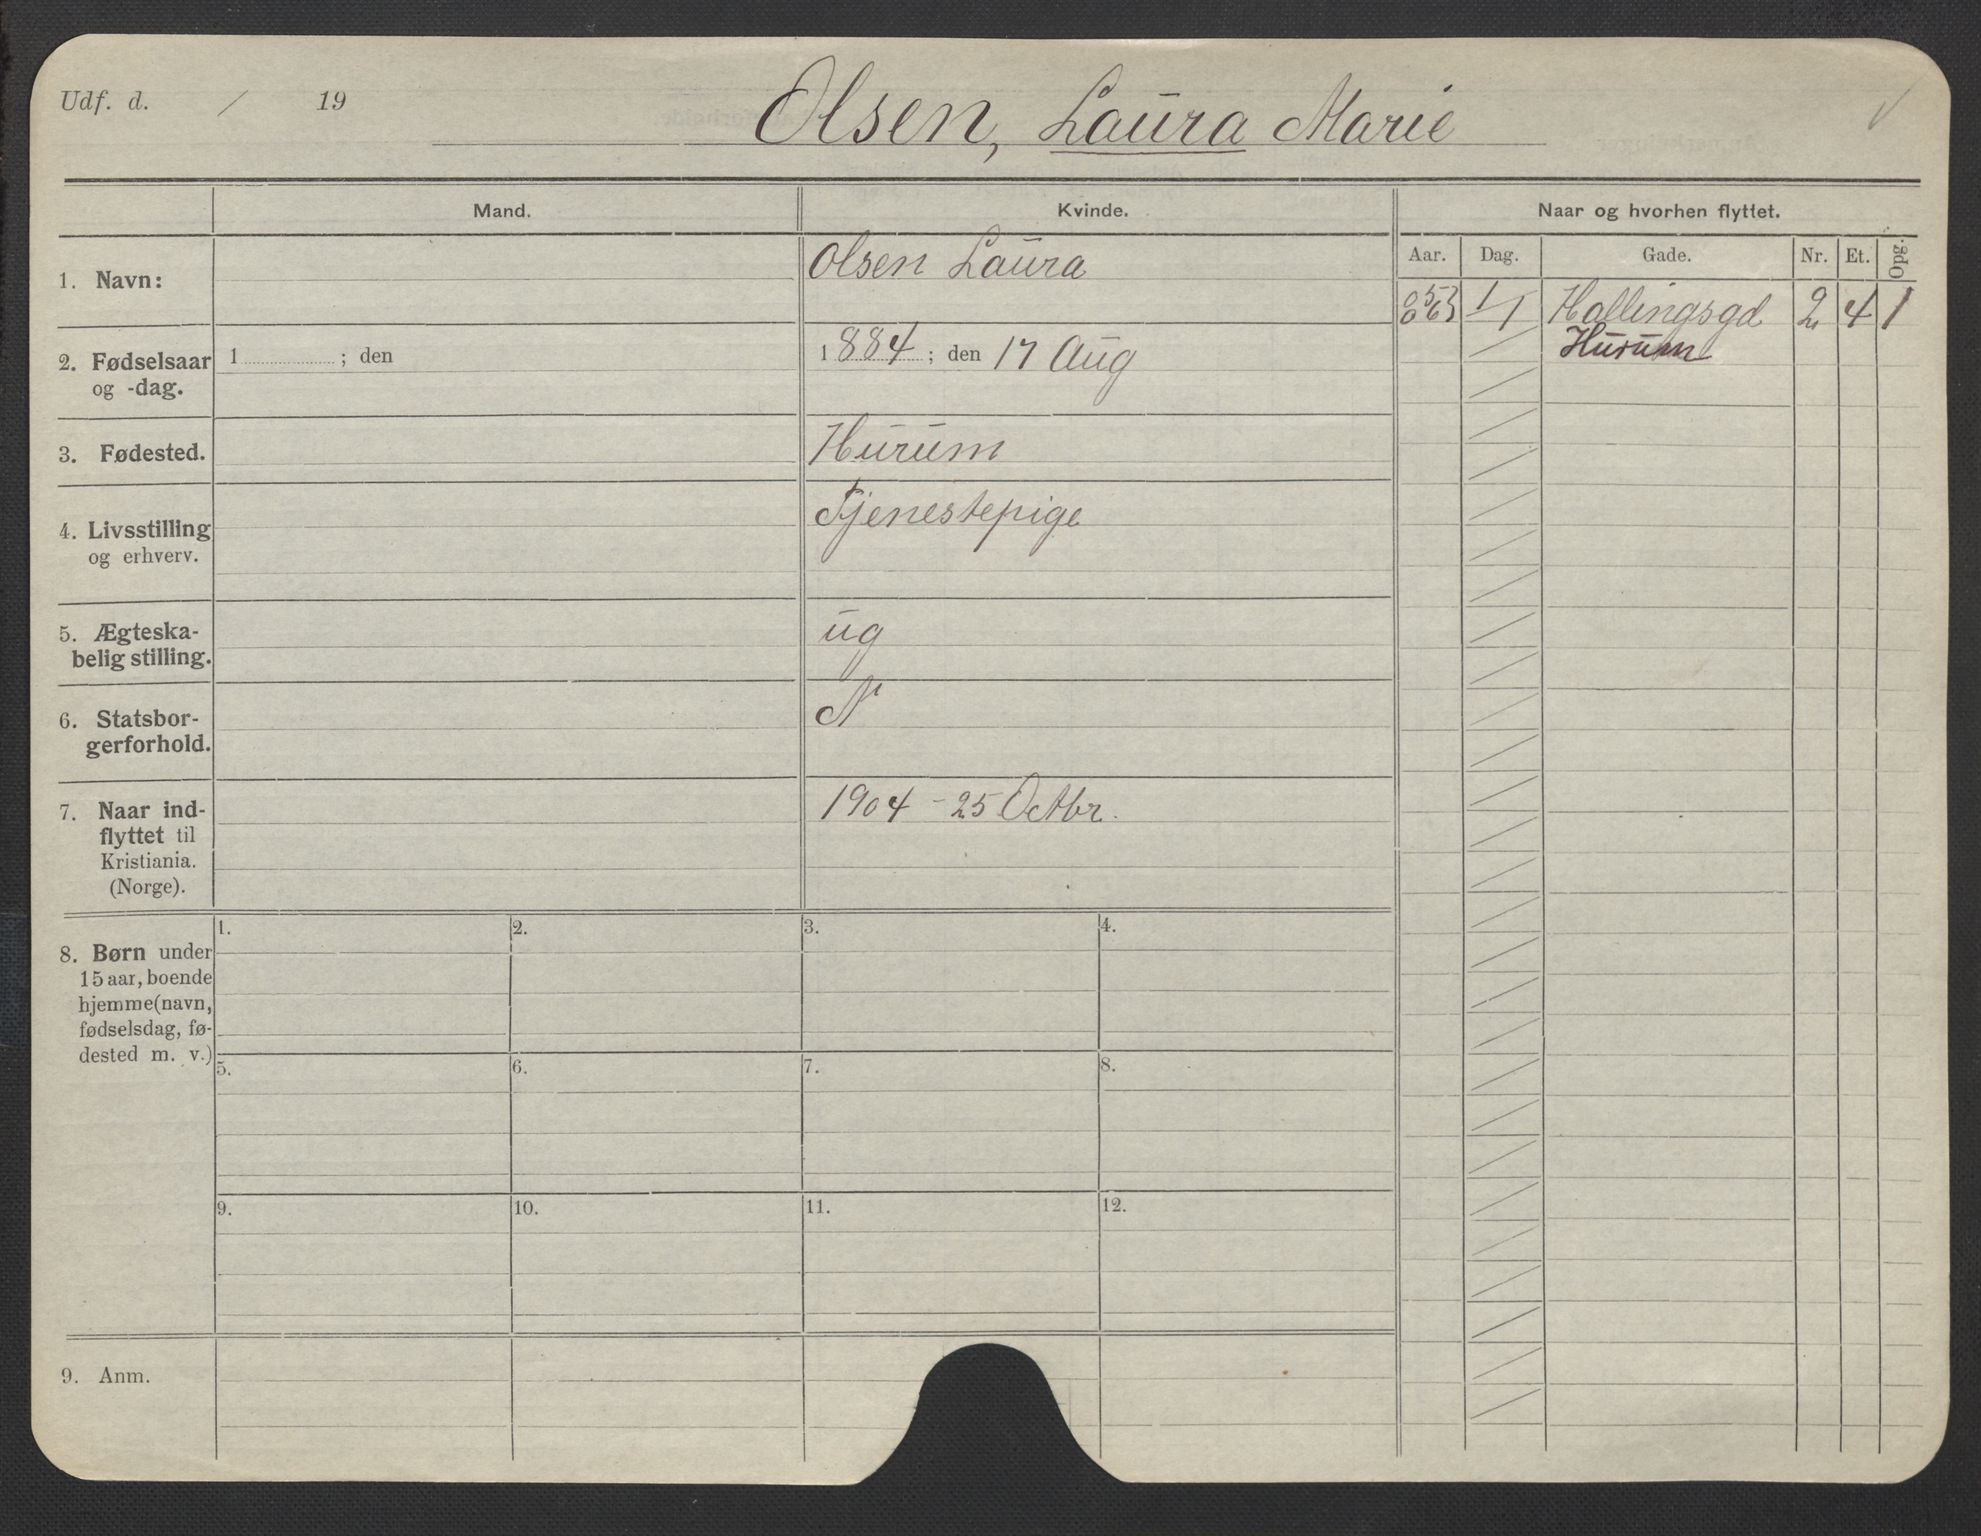 Udf. d. / 19
Olsen, Laura Marie
Mand.
Kvinde.
Naar og hvorhen flyttet.
Aar. Dag. Gade. Nr. Et. Opg.
1. Navn:
Olsen Laura
1/1 Hallingsgd 2 4 1
Hurum
2. Fødselsaar
og -dag.
1 ; den
1884 ; den 17 Aug
3. Fødested.
Hurum
4. Livsstilling
og erhverv.
Tjenestepige
5. Ægteska-
belig stilling.
ug
6. Statsbor-
gerforhold.
N
7. Naar ind-
flyttet til
Kristiania.
(Norge).
1904 - 25 Octbr.
8. Børn under
15 aar, boende
hjemme (navn,
fødselsdag, fø-
dested m. v.)
1. 2. 3. 4.
5. 6. 7. 8.
9. 10. 11. 12.
9. Anm.